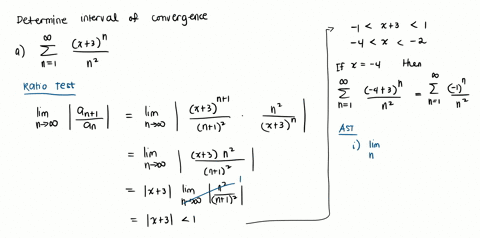 Determine interval of convergence
a) ∞ Σ n=1 (x+3)^n / n^2
Ratio Test
lim n→∞ | a_{n+1} / a_n | = lim n→∞ | (x+3)^{n+1} / (n+1)^2 · n^2 / (x+3)^n |
= lim n→∞ | (x+3) n^2 / (n+1)^2 |
= |x+3| lim n→∞ | n^2 / (n+1)^2 | 1
= |x+3| < 1
-1 < x+3 < 1
-4 < x < -2
If x = -4 then
∞ Σ n=1 (-4+3)^n / n^2 = ∞ Σ n=1 (-1)^n / n^2
AST
i) lim n